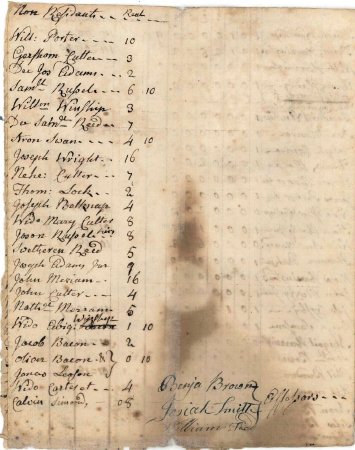 Non Residants Real
Will: Porter 10
Gershom Cutter 3
Dec Jos Adams 2
Samll Russel 6 10
Willm Winship 3
De Samll Reed 7
Aron Swan 4 10
Joseph Wright 16
Nehe: Cutter 7
Thom: Lock 2
Joseph Belknap 4
Wido Mary Cutter 8
Jason Russel 8
Swetheren Reed 5
Joseph Adams Jur 9
John Meriam 16
John Cutter 4
Nathal Meriam 5
Wido Winship 1 10
Jacob Bacon 2
Oliver Bacon 0 10
Jonas
Wido 4
Calvin Simond, 0 8
Benja Brown
Josiah Smith Assessors
William